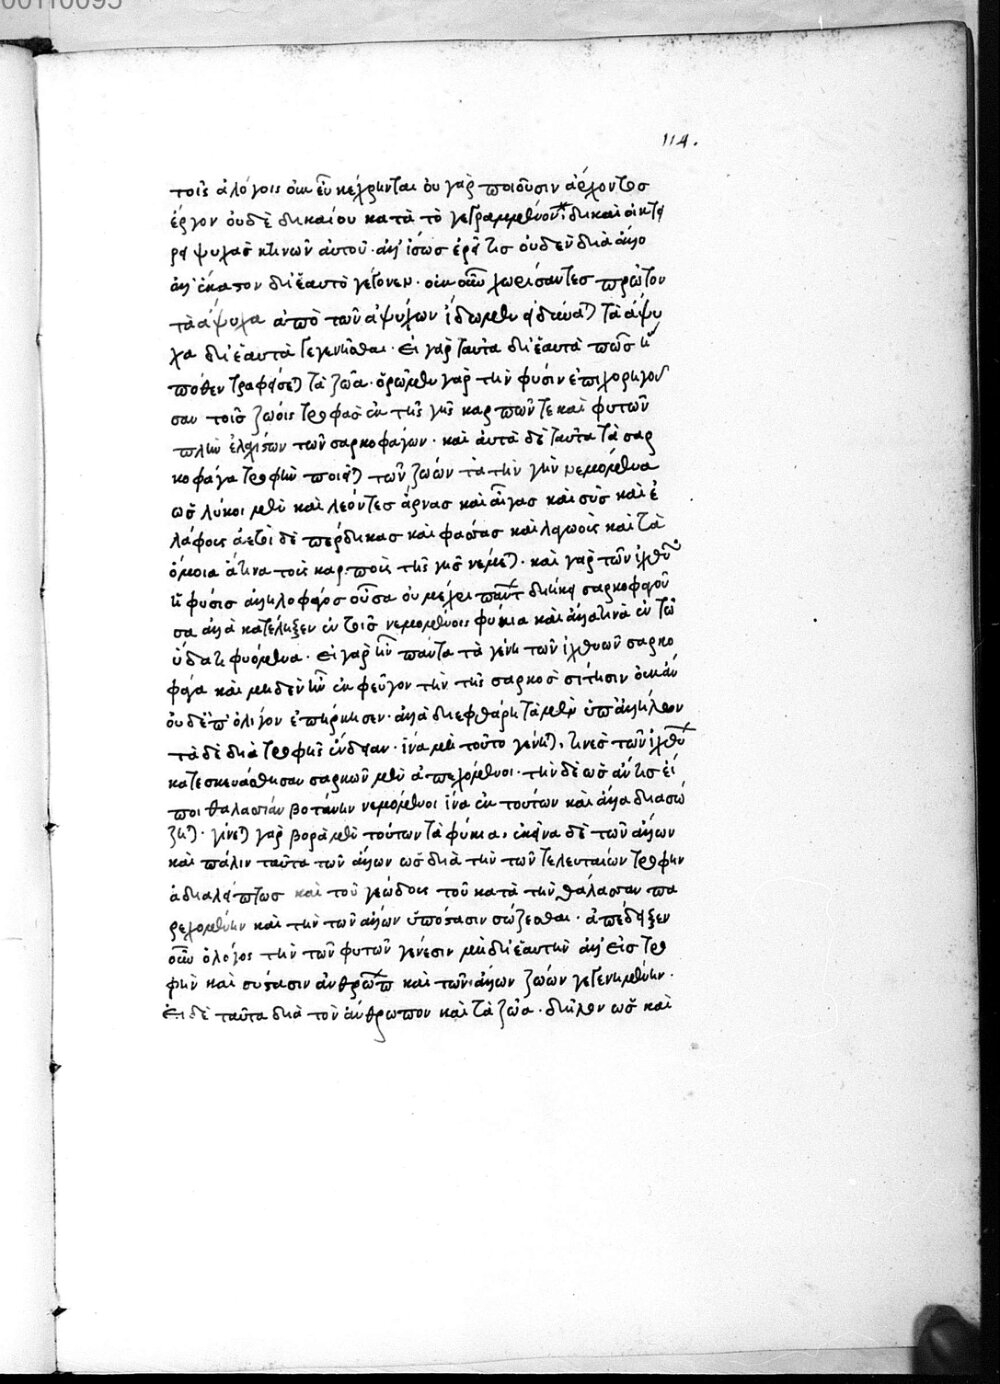 00110095
114.
τοῖς ἀλόγοις οὐκ εὖ κέχρηνται οὐ γὰρ ποιοῦσιν ἄρχοντος
ἔργον οὐδὲ δικαίου κατὰ τὸ γεγραμμένον· δίκαιος οἰκτεί
ρει ψυχὰς κτηνῶν αὐτοῦ· ἀλλ' ἴσως ἐρεῖ τις οὐδὲν διὰ ἄλλο
ἀλλ' ἕκαστον δι' ἑαυτὸ γέγονεν· οὐκοῦν χωρίσαντες πρῶτον
τὰ ἄψυχα ἀπὸ τῶν ἐμψύχων ἴδωμεν εἰ δύναται τὰ ἄψυ
χα δι' ἑαυτὰ γεγενῆσθαι· Εἰ γὰρ ταῦτα δι' ἑαυτὰ πῶς ἢ
πόθεν τραφήσεται τὰ ζῶα· ὁρῶμεν γὰρ τὴν φύσιν ἐπιχορηγοῦ
σαν τοῖς ζώοις τροφὰς ἐκ τῆς γῆς καρπῶν τε καὶ φυτῶν
πλὴν ἐλαχίστων τῶν σαρκοφάγων· καὶ αὐτὰ δὲ ταῦτα τὰ σαρ
κοφάγα τροφὴν ποιεῖται τῶν ζώων τὰ τὴν γῆν νεμόμενα
ὡς λύκοι μὲν καὶ λέοντες ἄρνας καὶ αἶγας καὶ σῦς καὶ ἐ
λάφους ἀετοὶ δὲ πέρδικας καὶ φάσσας καὶ λαγωοὺς καὶ τὰ
ὅμοια ἅτινα τοῖς καρποῖς τῆς γῆς νέμεται· καὶ γὰρ τῶν ἰχθύων
ἡ φύσις ἀλληλοφάγος οὖσα οὐ μέχρι παντὸς διήκει σαρκοφαγοῦ
σα ἀλλὰ κατέληξεν ἐν τοῖς νεμομένοις φύκια καὶ ἄλλα τινὰ ἐν τῷ
ὕδατι φυόμενα· Εἰ γὰρ ἦν πάντα τὰ γένη τῶν ἰχθύων σαρκο
φάγα καὶ μηδὲν ἦν ἐκφεῦγον τὴν τῆς σαρκὸς σίτησιν οὐκ ἂν
οὐδ' ἐπ' ὀλίγον ἐπήρκησεν· ἀλλὰ διεφθάρη τὰ μὲν ὑπ' ἀλλήλων
τὰ δὲ διὰ τροφῆς ἔνδειαν· ἵνα μὴ τοῦτο γένηται, τινὲς τῶν ἰχθύων
κατεσκευάσθησαν σαρκῶν μὲν ἀπεχόμενοι· τὴν δὲ ὡς ἄν τις εἴ
ποι θαλασσίαν βοτάνην νεμόμενοι ἵνα ἐκ τούτων καὶ ἄλλα διασώ
ζηται· γίνεται γὰρ βορὰ μὲν τούτων τὰ φύκια, ἐκεῖνα δὲ τῶν ἄλλων
καὶ πάλιν ταῦτα τῶν ἄλλων ὡς διὰ τὴν τῶν τελευταίων τροφὴν
ἀδιαλείπτως καὶ τοῦ γεώδους τοῦ κατὰ τὴν θάλασσαν πα
ρεχομένην καὶ τὴν τῶν ἄλλων ὑπόστασιν σώζεσθαι· ἀπέδειξεν
οὖν ὁ λόγος τὴν τῶν φυτῶν γένεσιν μὴ δι' ἑαυτὴν ἀλλ' εἰς τρο
φὴν καὶ σύστασιν ἀνθρώπων καὶ τῶν ἄλλων ζώων γεγενημένην·
Εἰ δὲ ταῦτα διὰ τὸν ἄνθρωπον καὶ τὰ ζῶα· δῆλον ὡς καὶ